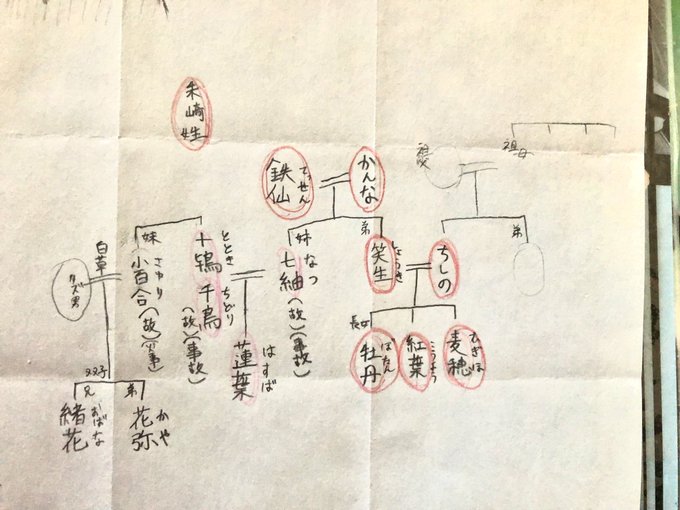 朱崎姓
鉄仙
てっせん
かんな
祖父
祖母
弟
姉
七紬
なつ
(故)(事故)
弟
笑生
ちしの
長女
牡丹
ぼたん
紅葉
麦穂
むぎほ
十鴇
ととき
千鳥
ちどり
(故)(事故)
蓮葉
はすば
妹
小百合
さゆり
(故)
白草
クズ男
双子
兄
緒花
おばな
弟
花弥
かや